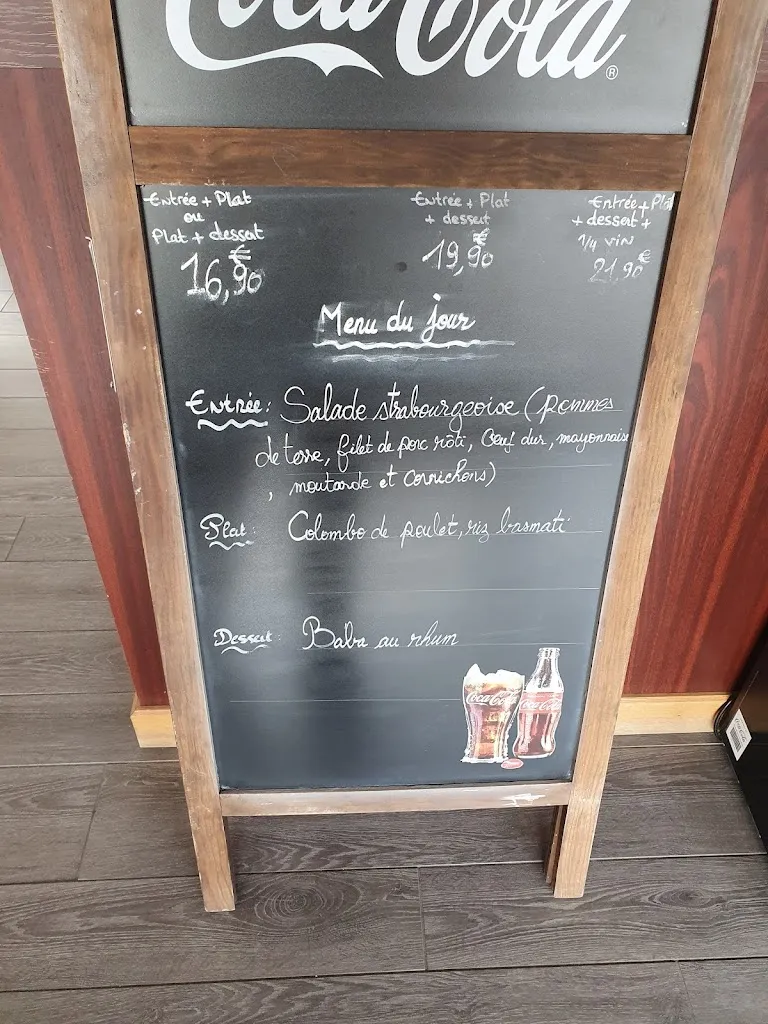 Coca Cola®
Entrée + Plat
ou
Plat + dessert
16,90€
Entrée + Plat
+ dessert
19,90€
Entrée + Plat
+ dessert +
1/4 vin
21,90€
Menu du jour
Entrée: Salade strabourgeoise (pommes
de terre, filet de porc rôti, Oeuf dur, mayonnaise
, moutarde et Cornichons)
Plat: Colombo de poulet, riz basmati
Dessert: Baba au rhum
Coca-Cola Coca-Cola